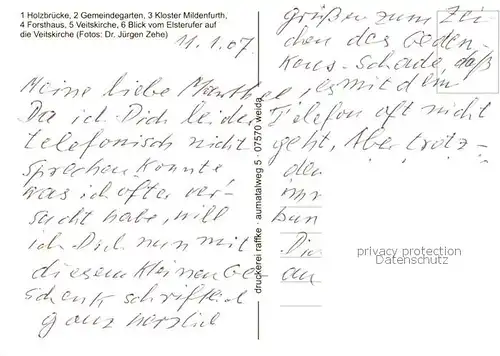 1 Holzbrücke, 2 Gemeindegarten, 3 Kloster Mildenfurth,
4 Forsthaus, 5 Veitskirche, 6 Blick vom Elsterufer auf
die Veitskirche (Fotos: Dr. Jürgen Zehe)
11.1.07.
Meine liebe
Da ich Dich leider
telefonisch nicht
sprechen konnte
was ich öfter ver-
sucht habe, will
ich Dich nun mit
diesem kleinen Ge-
schenk schriftlich
ganz herzlich
druckerei raffke · aumatalweg 5 · 07570 weida
grüßen zum Zei-
chen des Geden-
kens. Schade, daß
es mit dem
Telefon oft nicht
geht, Aber trotz-
dem
Dich
an
privacy protection
Datenschutz